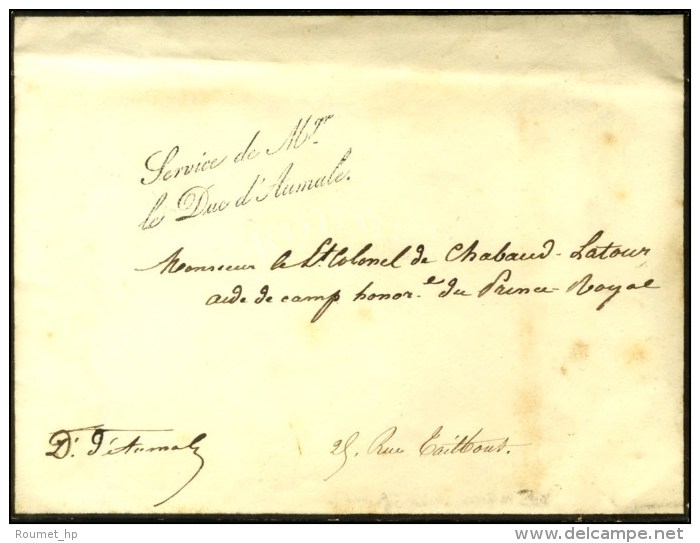 Service de Mgr
le Duc d'Aumale.
Monsieur le Lt. Colonel de Chabaud-Latour
aide de camp honor.e du Prince-Royal
D. d'Aumale
25, Rue Taitbout.
Roumet_hp
©delcampe.net